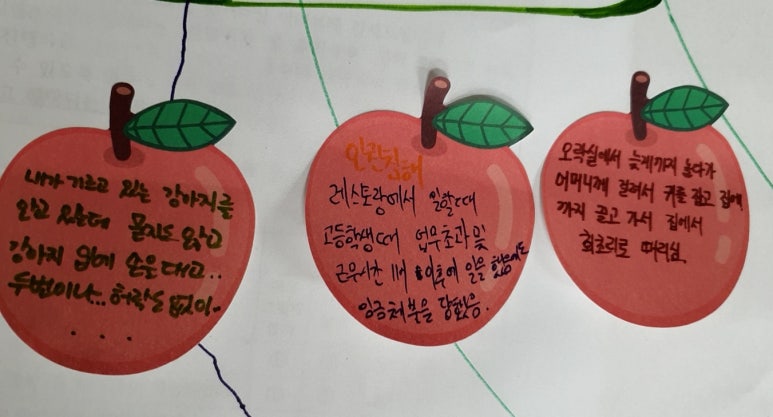 내가 기르고 있는 강아지를
안고 있는데 묻지도 않고
강아지 입에 손을 대고..
두번이나... 허락도 없이..
...
레스토랑에서 일할때
고등학생때 업무초과 및
근무시간 11시 이후에 일을 했음에도
임금체불을 당했음.
오락실에서 늦게까지 놀다가
어머니께 걸려서 귀를 잡고 집에
까지 끌고 가서 집에서
회초리로 때리심.